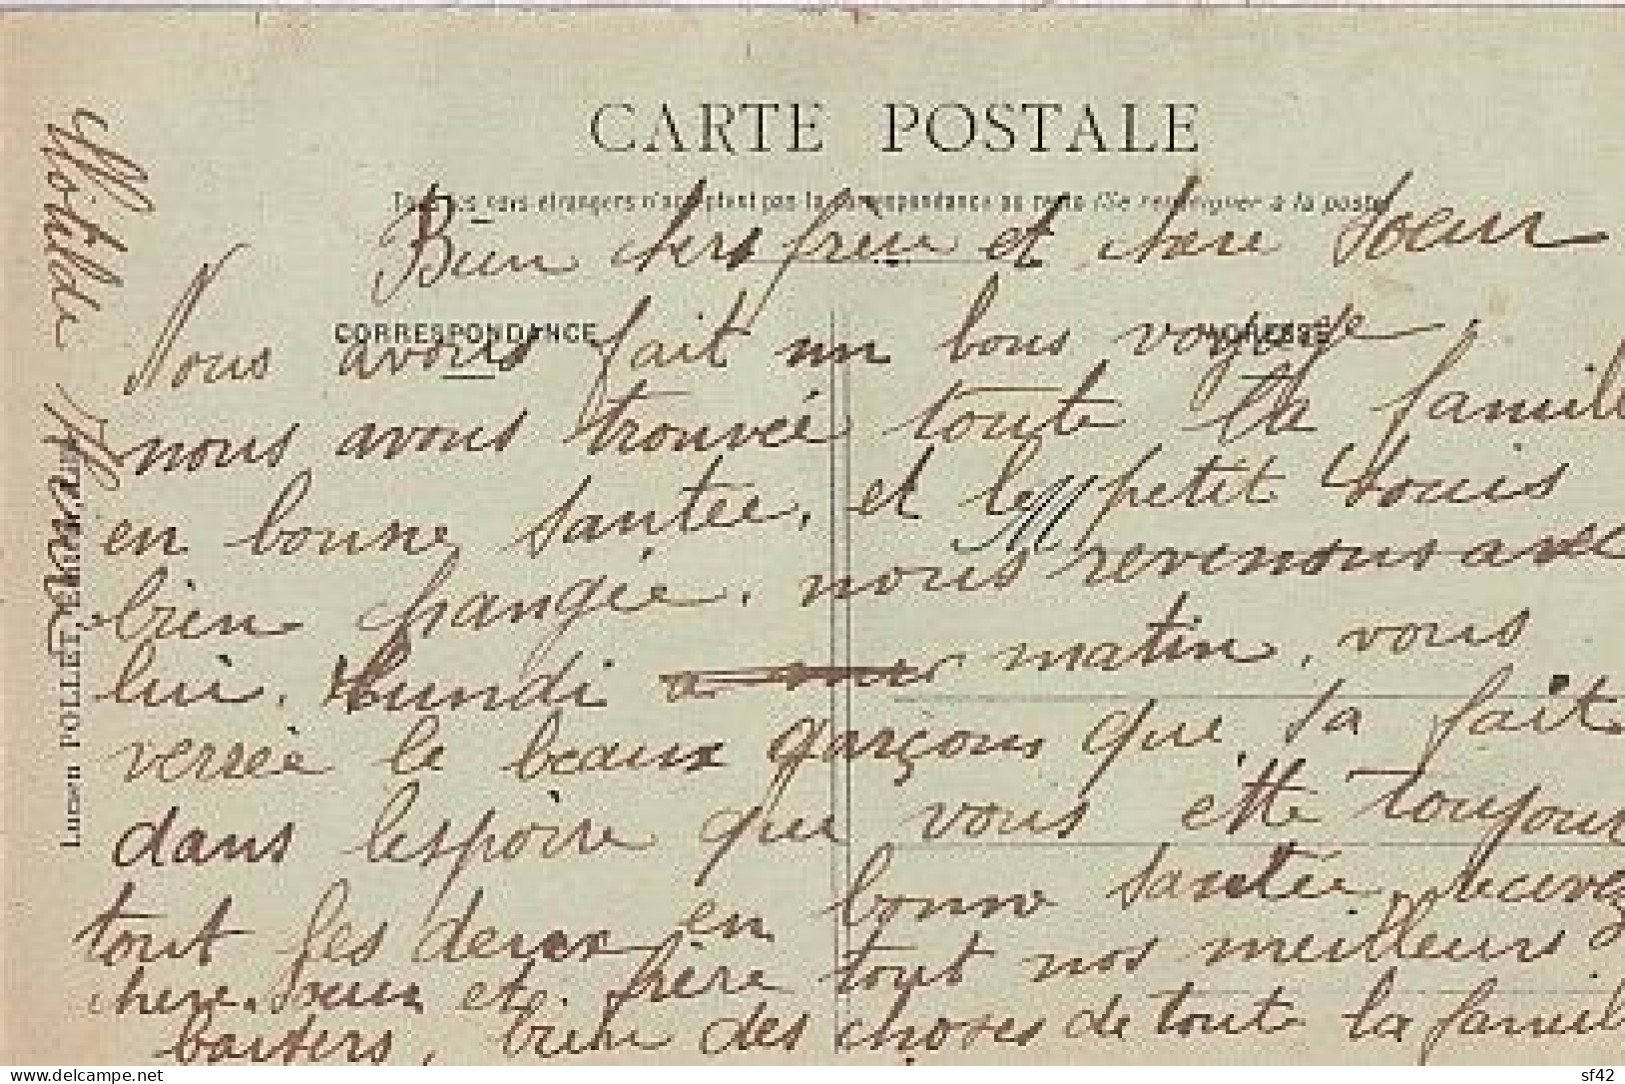 CARTE POSTALE
Tous les pays étrangers n'acceptent pas la correspondance au recto (Se renseigner à la poste)
CORRESPONDANCE
ADRESSE
Bien chers frère et chere Soeur
Nous avons fait un bons voyage
nous avons trouvée toute la famill
en bonne santee, et le petit Louis
bien changée. nous revenons avec
lui. Lundi matin, vous
verrée le beaux garçons que sa fait
dans lespoire que vous ette toujour
tout les deux en bonne santée, recevez
chere Soeur et frère tout nos meilleurs
baisers, bien des choses de toute la famil
Lucien POLLET,
delcampe.net
sf42